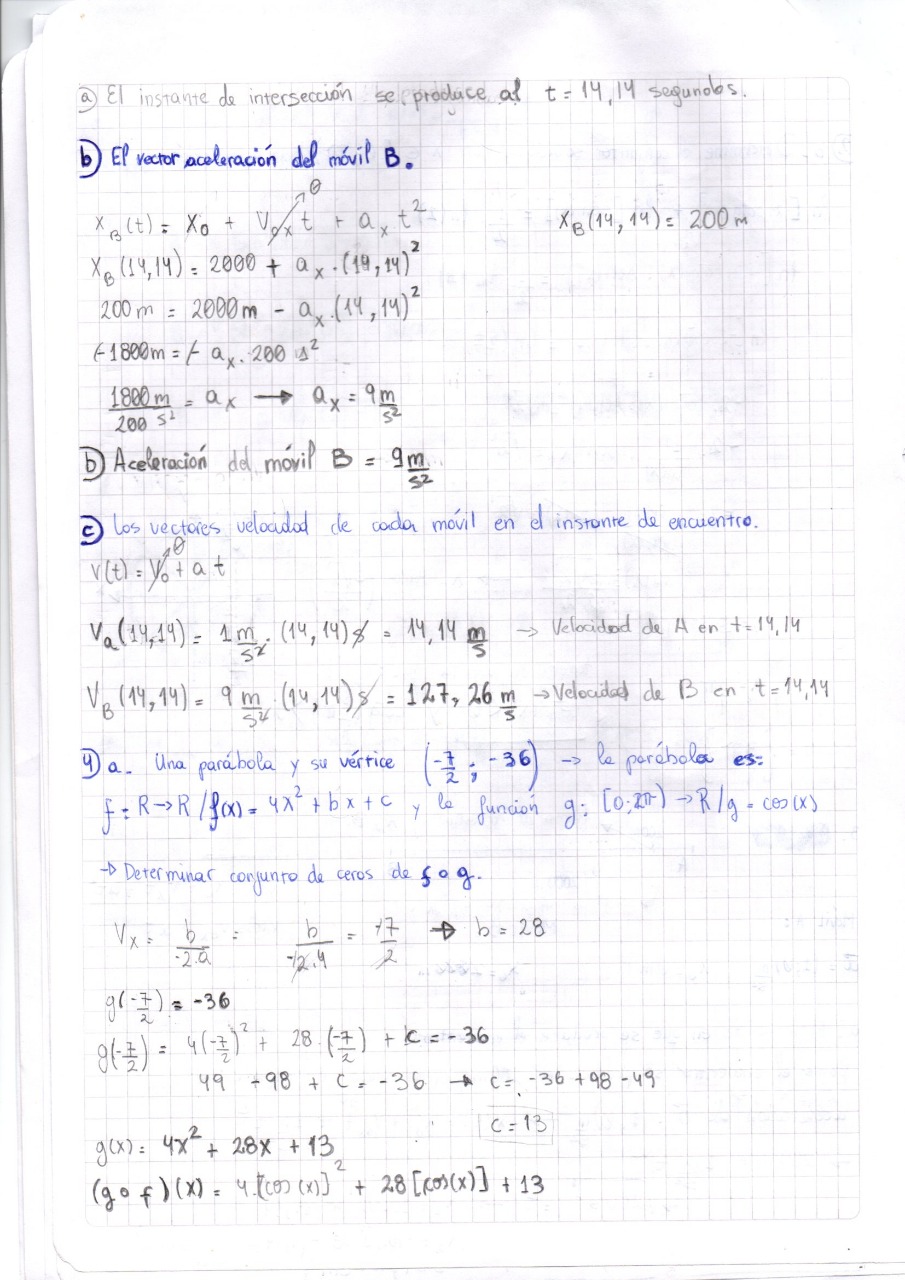 a) El instante de intersección se produce al t = 14,14 segundos.
b) El vector aceleración del móvil B.
x_B(t) = x_0 + V_0x t + a_x t^2    x_B(14,14) = 200 m
0
x_B(14,14) = 2000 + a_x . (14,14)^2
200 m = 2000 m - a_x . (14,14)^2
-1800 m = - a_x . 200 s^2
1800 m / 200 s^2 = a_x → a_x = 9 m/s^2
b) Aceleración del móvil B = 9 m/s^2
c) Los vectores velocidad de cada móvil en el instante de encuentro.
0
v(t) = V_0 + a t
V_a(14,14) = 1 m/s^2 . (14,14) s = 14,14 m/s → Velocidad de A en t = 14,14
V_B(14,14) = 9 m/s^2 . (14,14) s = 127,26 m/s → Velocidad de B en t = 14,14
4) a. Una parábola y su vértice (-7/2 ; -36) → la parábola es:
f : R → R / f(x) = 4x^2 + bx + c y la función g : [0; 2π) → R / g = cos(x)
→ Determinar conjunto de ceros de f o g.
V_x = b/-2.a = b/-2.4 = -7/2 → b = 28
g(-7/2) = -36
g(-7/2) = 4(-7/2)^2 + 28 . (-7/2) + c = -36
49 - 98 + c = -36 → c = -36 + 98 - 49
c = 13
g(x) = 4x^2 + 28x + 13
(g o f)(x) = 4.[cos(x)]^2 + 28[cos(x)] + 13